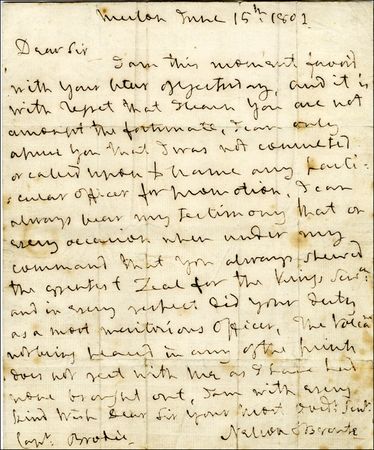 Merton June 15th: 1802
Dear Sir
I am this moment favor'd
with Your letter of Yesterday, and it is
with regret that I learn You are not
amongst the fortunate, I can only
assure You that I was not consulted
or called upon to name any parti-
-cular officer for promotion, I can
always bear my testimony that on
every occasion when under my
command that You always shewed
the greatest Zeal for the Kings Serv:
and in every respect did Your duty
as a most meritorious officer, The
not being placed in any of the prints
does not rest with me, as I have had
none brought out, I am with every
kind Wish Dear Sir Your Most Obedt: Servt:
Nelson & Bronte
Capt: Brodie.